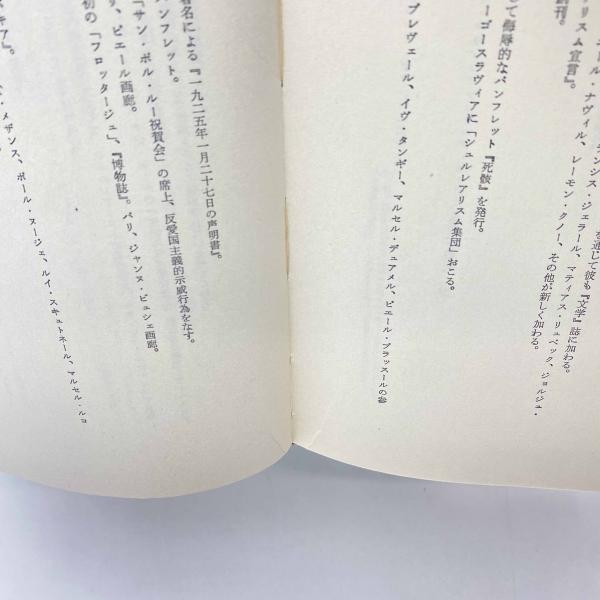 を通じて彼も『文学』誌に加わる。
ンシス・ジェラール、マティアス・リュベック、ジョルジュ・
・ナヴィル、レーモン・クノー、その他が新しく加わる。
創刊。
リスム宣言』。
して侮辱的なパンフレット『死骸』を発行。
ーゴースラヴィアに「シュルレアリスム集団」おこる。
プレヴェール、イヴ・タンギー、マルセル・デュアメル、ピエール・ブラッスールの参
署名による『一九二五年一月二十七日の声明書』。
パンフレット。
「サン・ポル・ルー祝賀会」の席上、反愛国主義的示威行為をなす。
リ、ピエール画廊。
初の「フロッタージュ」、『博物誌』。パリ、ジャンヌ・ビュシェ画廊。
メザンス、ポール・ヌージェ、ルイ・スキュトネール、マルセル・ルコ
キア』。